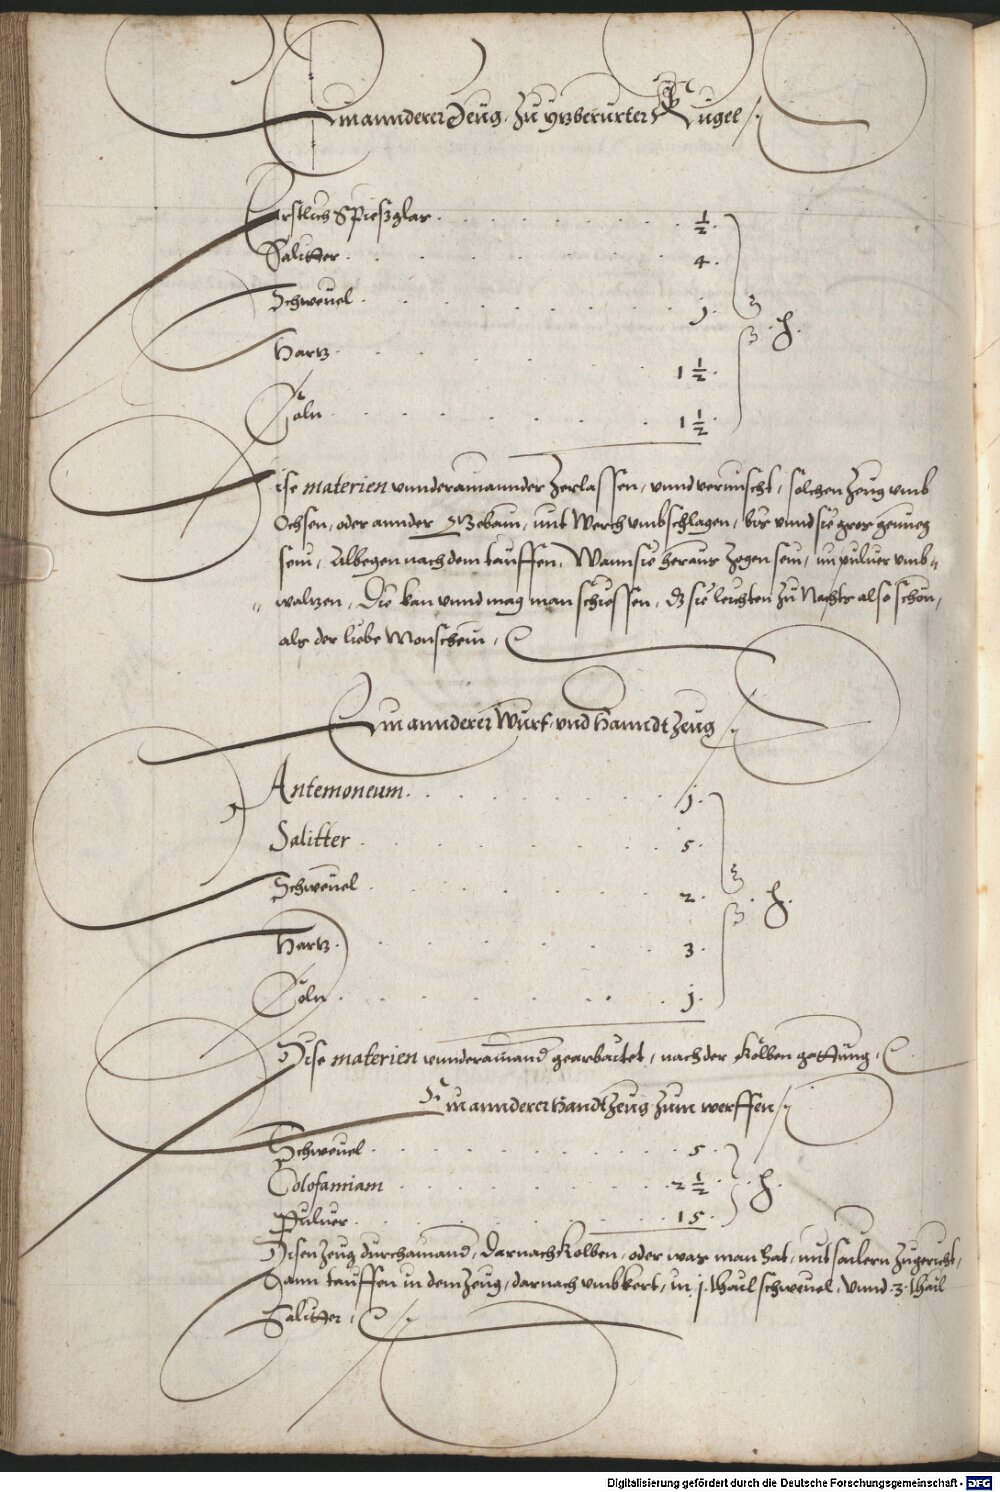 Ein annderer Zeug, Zu yezberürter Kugel
Erstlich Spießglas . ½.
Salitter . 4.
Schwevel . j.
Hartz . 1 ½.
Coln . 1 ½.
℔.
Dise materien unnderainannder Zerlassen, unnd vermischt, solchen Zeug umb
Ochsen, oder annder bain, mit Werch umbschlagen, bis unnd sie gros genueg
sein, Albegen nach dem tauffen, Wann sie heraus Zogen sein, im puluer umb„
„ waltzen, Die kan unnd mag man schiessen, dz sie leichten Zu Nachts also schön,
als der liebe Monschein,
Ein annderer Wurf, und Hanndt Zeug
Antemoneum . j.
Salitter . 5.
Schwevel . 2.
Hartz . 3.
Coln . j.
℔.
Dise materien unnderainand gearbaitet, nach der Kolben gattung,
Ein annderer Handt Zeug Zum werffen
Schwevel . 5.
Colofoniam . 2 ½.
Puluer . 15.
℔.
Disen Zeug durchainand, Darnach Kolben, oder was man hat, mit Zugericht,
Dann tauffen in dem Zeug, darnach umbkert, in j. thail schwevel, Unnd .3. thail
Salitter,
Digitalisierung gefördert durch die Deutsche Forschungsgemeinschaft - DFG